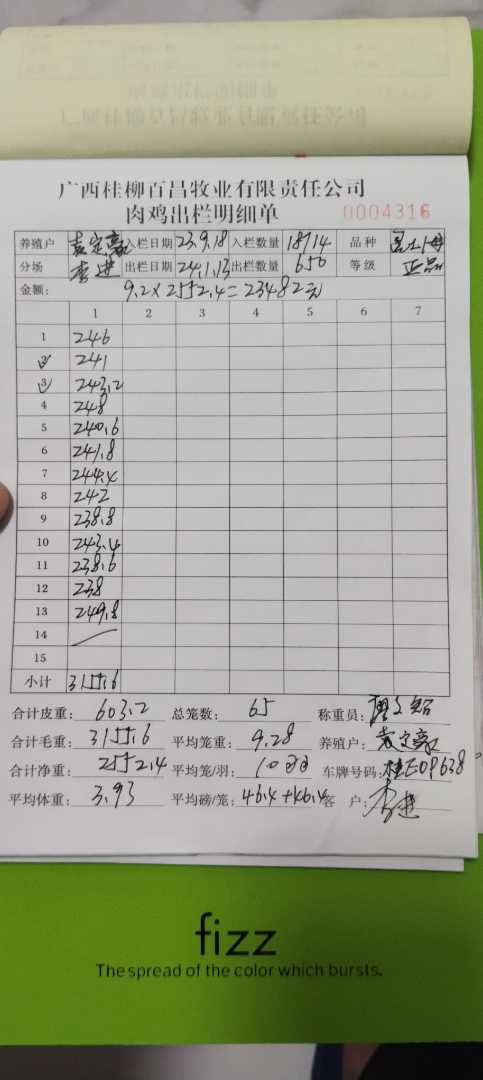 广西桂柳百昌牧业有限责任公司
肉鸡出栏明细单 0004316
养殖户 袁定豪 入栏日期 23.9.18 入栏数量 18914 品种
分场 李进 出栏日期 24.1.13 出栏数量 650 等级 正品
金额: 9.2×2552.4=23482元
1 2 3 4 5 6 7
1 246
2 241
3 243.2
4 248
5 240.6
6 241.8
7 244.4
8 242
9 238.8
10 243.4
11 238.6
12 238
13 249.8
14
15
小计 3155.6
合计皮重: 603.2 总笼数: 65 称重员:
合计毛重: 3155.6 平均笼重: 9.28 养殖户: 袁定豪
合计净重: 2552.4 平均笼/羽: 10 车牌号码: 桂E09638
平均体重: 3.93 平均磅/笼: 46.4+46.4 客 户: 李进
fizz
The spread of the color which bursts.